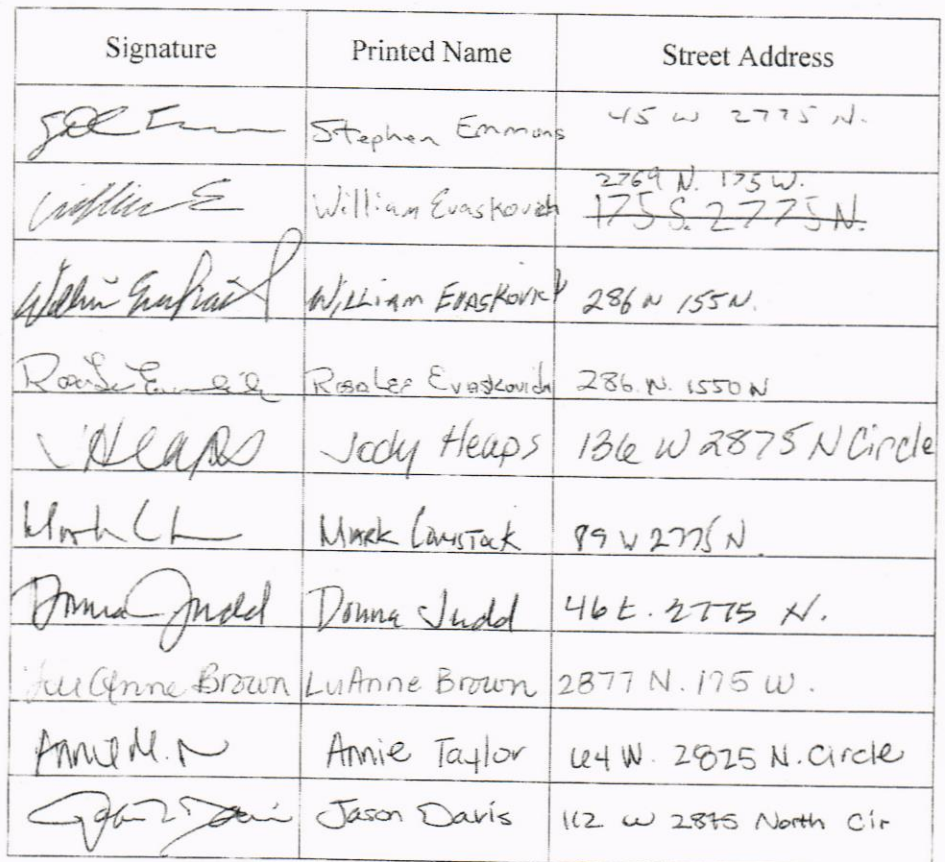 Signature Printed Name Street Address
Stephen Emmons 45 W 2775 N.
2769 N. 175 W.
William E William Evaskovich 175 S. 2775 N.
William Evaskovich William Evaskovich 286 N 155 N.
RosaLee Evaskovich 286. N. 1550 N
J Heaps Jody Heaps 136 W 2875 N Circle
Mark Comstock 89 W 2775 N.
Donna Judd Donna Judd 46 E. 2775 N.
LuAnne Brown LuAnne Brown 2877 N. 175 W.
Annie M. Annie Taylor 64 W. 2825 N. Circle
Jason Davis 112 W 2875 North Cir